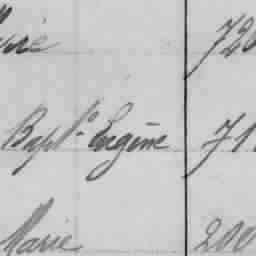 720
Bapt.e Eugène 71
Marie 200